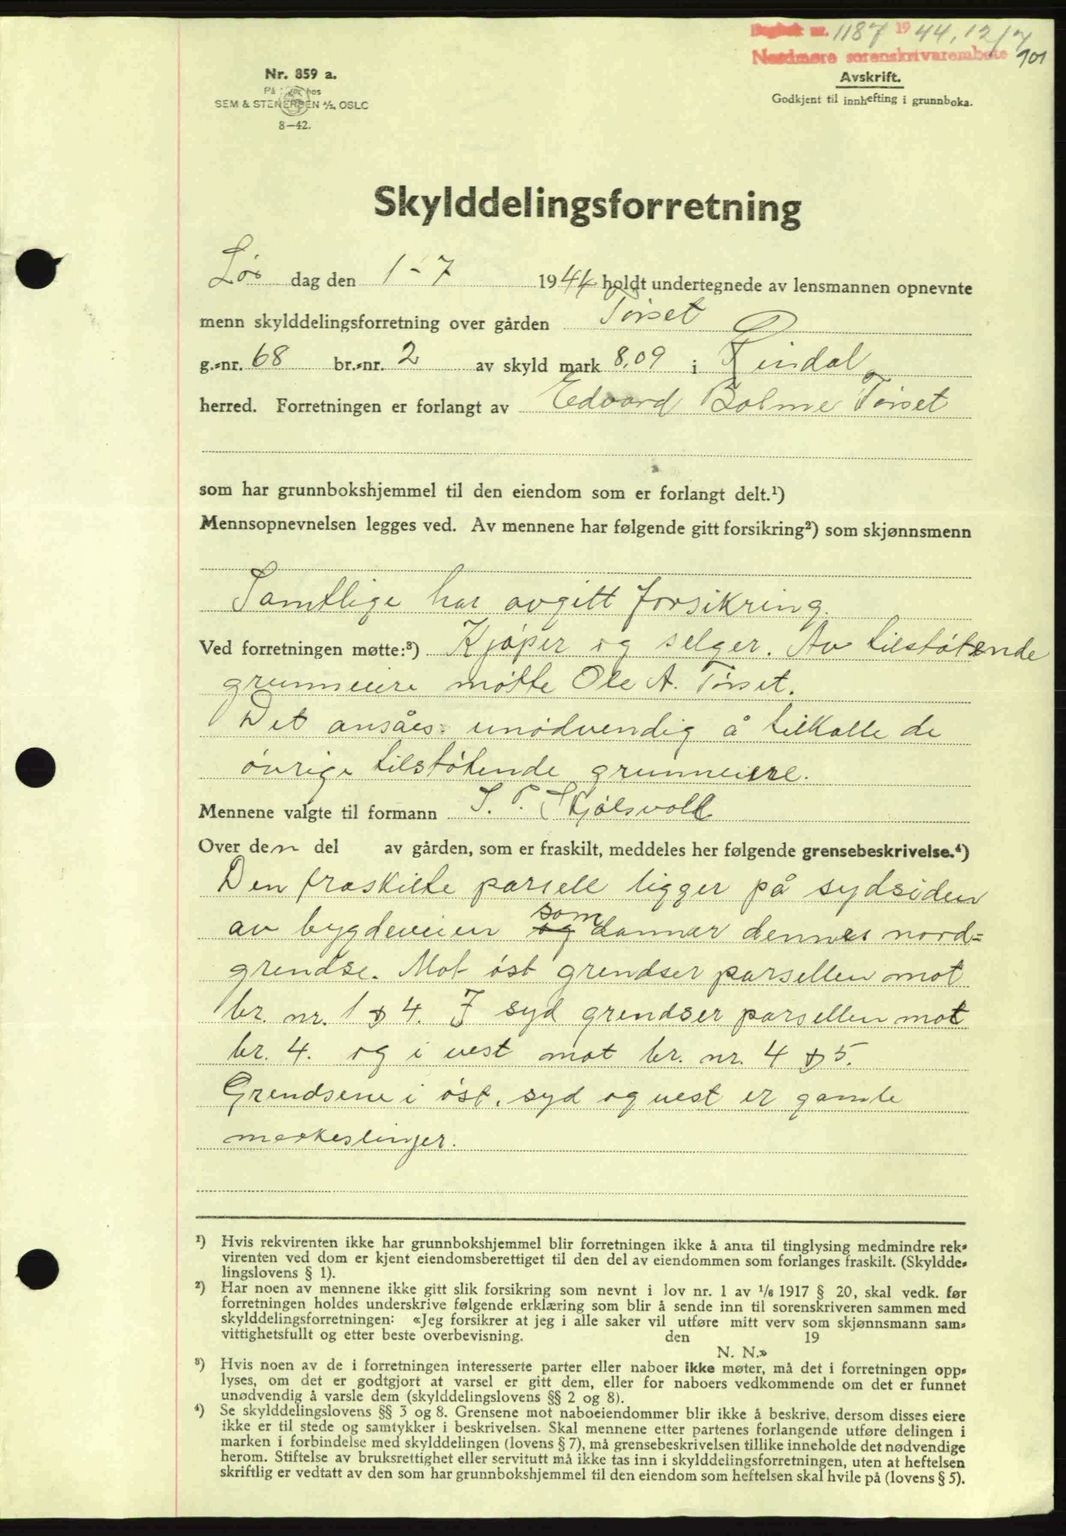 Dagbok nr. 1187 1944, 12/7
Nordmøre sorenskrivarembete 901
Nr. 859 a.
På lager hos
SEM & STENERSEN A/S, OSLO
8—42.
Avskrift.
Godkjent til innhefting i grunnboka.
Skylddelingsforretning
Lør dag den 1-7 1944 holdt undertegnede av lensmannen opnevnte
menn skylddelingsforretning over gården Tørset
g.-nr. 68 br.-nr. 2 av skyld mark 8,09 i Rindal
herred. Forretningen er forlangt av Edvard Bolme Tørset
som har grunnbokshjemmel til den eiendom som er forlangt delt.¹)
Mennsopnevnelsen legges ved. Av mennene har følgende gitt forsikring²) som skjønnsmenn
Samtlige har avgitt forsikring.
Ved forretningen møtte:³) Kjøper og selger. Av tilstøtende
grunneiere møtte Ole A. Tørset.
Det ansåes unødvendig å tilkalle de
øvrige tilstøtende grunneiere.
Mennene valgte til formann S. P. Skjølsvold
Over den del av gården, som er fraskilt, meddeles her følgende grensebeskrivelse.⁴)
Den fraskilte parsell ligger på sydsiden
av bygdeveien og som danner dennes nord=
grendse. Mot øst grendser parsellen mot
br. nr. 1 & 4. I syd grendser parsellen mot
br. 4. og i vest mot br. nr. 4 & 5.
Grendsene i øst, syd og vest er gamle
merkeslinjer.
¹) Hvis rekvirenten ikke har grunnbokshjemmel blir forretningen ikke å anta til tinglysing medmindre rek-
virenten ved dom er kjent eiendomsberettiget til den del av eiendommen som forlanges fraskilt. (Skyldde-
lingslovens § 1).
²) Har noen av mennene ikke gitt slik forsikring som nevnt i lov nr. 1 av 1/6 1917 § 20, skal vedk. før
forretningen holdes underskrive følgende erklæring som blir å sende inn til sorenskriveren sammen med
skylddelingsforretningen: «Jeg forsikrer at jeg i alle saker vil utføre mitt verv som skjønnsmann sam-
vittighetsfullt og etter beste overbevisning. den 19
N. N.»
³) Hvis noen av de i forretningen interesserte parter eller naboer ikke møter, må det i forretningen opp-
lyses, om det er godtgjort at varsel er gitt dem, eller for naboers vedkommende om det er funnet
unødvendig å varsle dem (skylddelingslovens §§ 2 og 8).
⁴) Se skylddelingslovens §§ 3 og 8. Grensene mot naboeiendommer blir ikke å beskrive, dersom disses eiere
ikke er til stede og samtykker i beskrivelsen. Skal mennene etter partenes forlangende utføre delingen i
marken i forbindelse med skylddelingen (lovens § 7), må grensebeskrivelsen tillike inneholde det nødvendige
herom. Stiftelse av bruksrettighet eller servitutt må ikke tas inn i skylddelingsforretningen, uten at heftelsen
skriftlig er vedtatt av den som har grunnbokshjemmel til den eiendom som heftelsen skal hvile på (lovens § 5).